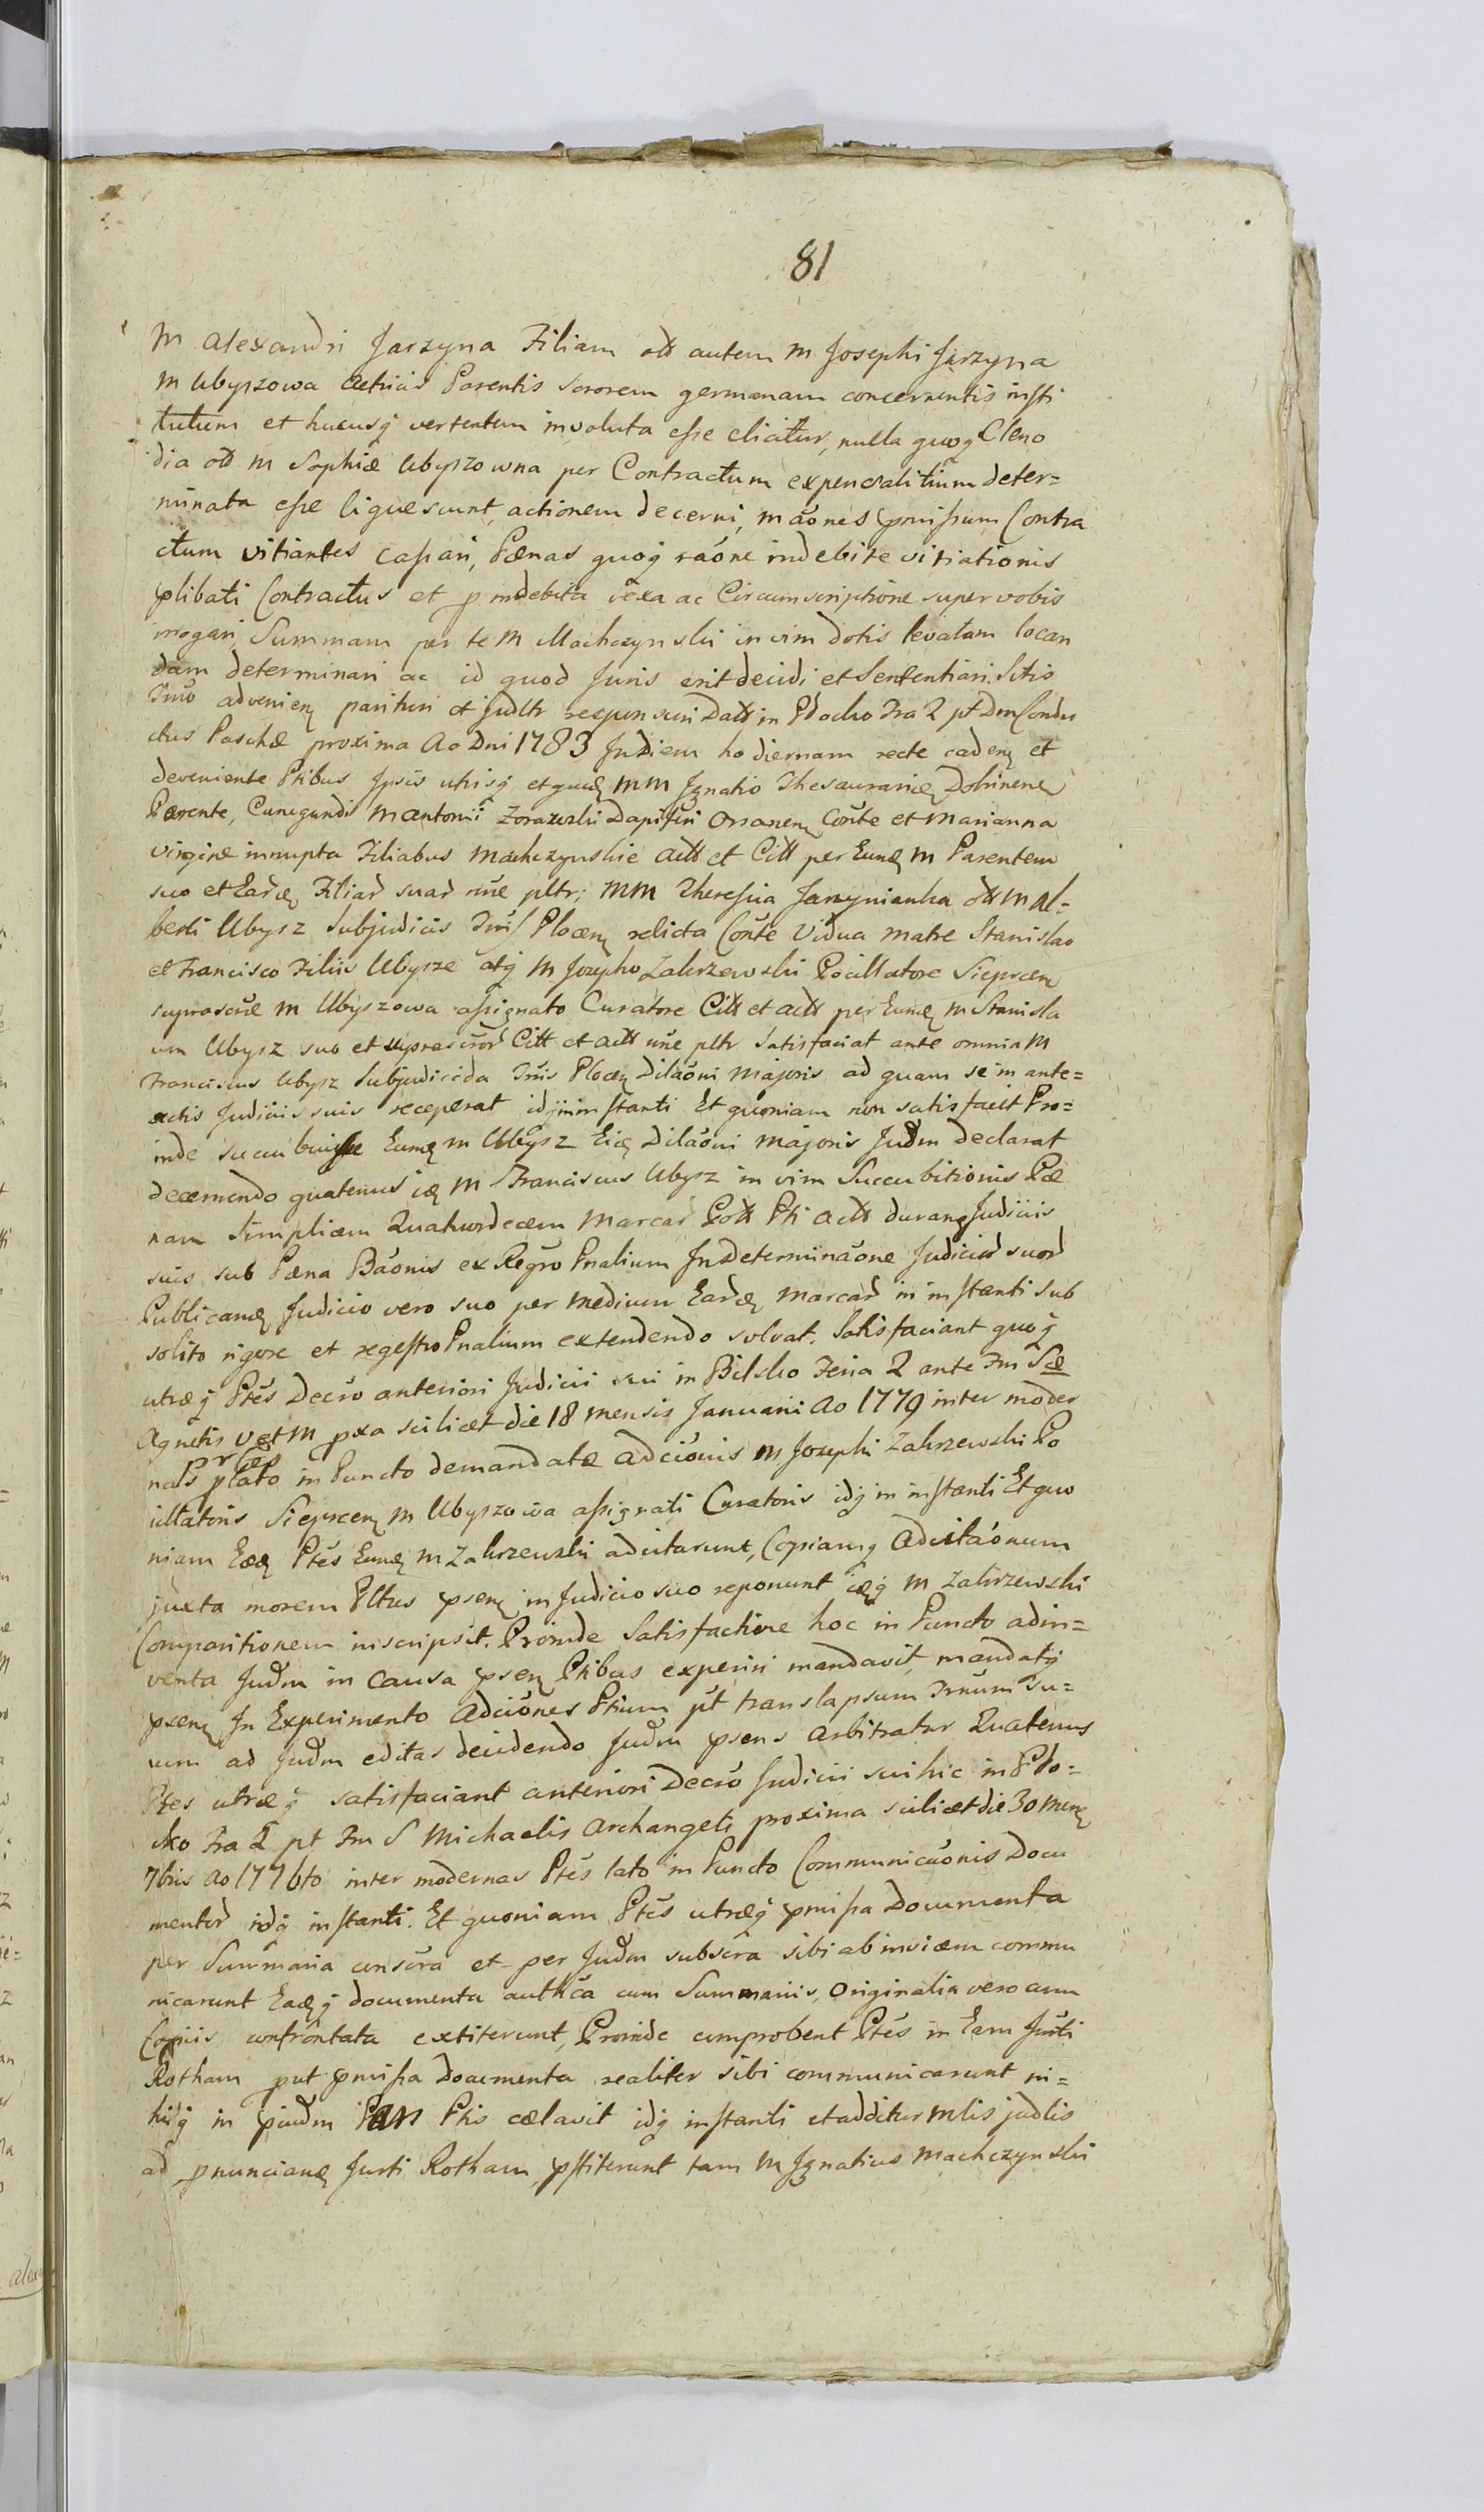 81
M Alexandri Jarzyna Filiam ott autem M Josephi Jarzyna
M Ubyszowa Actricis Parentis Sororem germanam concernentis insti
tutum et hucusq vertentem involuta esse elicitur, nulla quoq Cleno
dia ott M Sophiæ Ubyszowna per Contractum expensalitium deter=
minata esse liquescunt, actionem decerni, māones pmissum Contra
ctum vitiantes cassari, Pænas quoq rāone indebite vitiationis
plibati Contractus et p indebita vexa ac Circumscriptione super vobis
irrogari, Summam per te M Machczynski in vim dotis levatam locan
dam determinari ac id quod Juris erit decidi et Sententiari. Sitis
Trno advenien parituri et Judltr responsuri Datt in Plocko Fra 2 pt Dm Condu
ctus Paschæ proxima Ao Dni 1783 In diem hodiernam recte caden et
deveniente Ptibus Ipsis utrisq et quid MM Ignatio Thesaurario Dobrinen
Parente, Cunegundi M Antonii Zorawski Dapiferi Orsanen Cońte et Marianna
virgine innupta Filiabus Machczynskie Actt et Citt per Eund M Parentem
suo et Eard Filiar suar nńe pltr; MM Theressia Jarzynianka ott M Al=
berti Ubysz Subjudicis Trris Plocen relicta Cońte Vidua matre Stanislao
et Francisco Filiis Ubysze atq M Josepho Zakrzewski Pocillatore Sieprcen
suprascræ M Ubyszowa assignato Curatore Citt et actt per Eund M Stanisla
um Ubysz suo et suprascror Citt et actt nńe pltr Satisfaciat ante omnia M
Franciscus Ubysz Subjudicida Trris Plocen Dilāoni Majoris ad quam se in ante=
actis Judiciis suis receperat idq in instanti Et quoniam non satisfacit Pro=
inde succubuisse Eund M Ubysz Eid Dilāoni Majoris Judm declarat
decernendo quatenus id M Franciscus Ubysz in vim Succubitionis Pæ
nam Simplicem Quatuordecem Marcar Pott Pti actt duran Judiciis
suis sub Pæna Bāonis ex Regro Pnalium In determināone Judicior suor
Publicand Judicio vero suo per medium Eard marcar in instanti sub
solito rigore et regestro Pnalium extendendo solvat. Satisfaciant quoq
utræq Ptes Decro anteriori Judicii sui in Bielsko Feria 2 ante Fm Scæ
Agnetis V et M pxa scilicet die 18 mensis Januarii Ao 1779 inter moder
nas Ptes lato in Puncto demandatæ adcionis M Josephi Zakrzewski Po
cillatoris Sieprcen M Ubyszowa assignati Curatoris idq in instanti Et quo
niam Eæd Ptes Eund M Zakrzewski adcitarunt, Copiamq Adcitāonum
juxta morem Pltus psen in Judicio suo reponunt idq M Zakrzewski
Comparitionem inscripsit. Proinde Satisfactione hoc in Puncto adin=
venta Judm in Causa psen Ptibus experiri mandavit, mandatq
psen In Experimento Adciones Ptium pt translapsum Trnum Su=
um ad Judm editas decidendo Judm psens arbitratur Quatenus
Ptes utræq satisfaciant anteriori Decro Judicii sui hic in Plo=
cko Fra 2 pt Fm S Michaelis Archangeli proxima scilicet die 30 men
7bris Ao 1776to inter modernas Ptes lato in Puncto Communicāonis Docu
mentor idq instanti. Et quoniam Ptes utræq pmissa Documenta
per Summaria conscra et per Judm subscra sibi ab invicem commu
nicarunt Eadq documenta authca cum Summariis, Originalia vero cum
Copiis confrontata extiterunt, Proinde comprobent Ptes in Eam Jurti
Rotham put pmissa Documenta realiter sibi communicarunt ni=
hilq in pjudm Ptis cælavit idq instanti et additur Mlis judlis
ad pnunciand Jurti Rotham, pstiterunt tam M Ignatius Machczynski